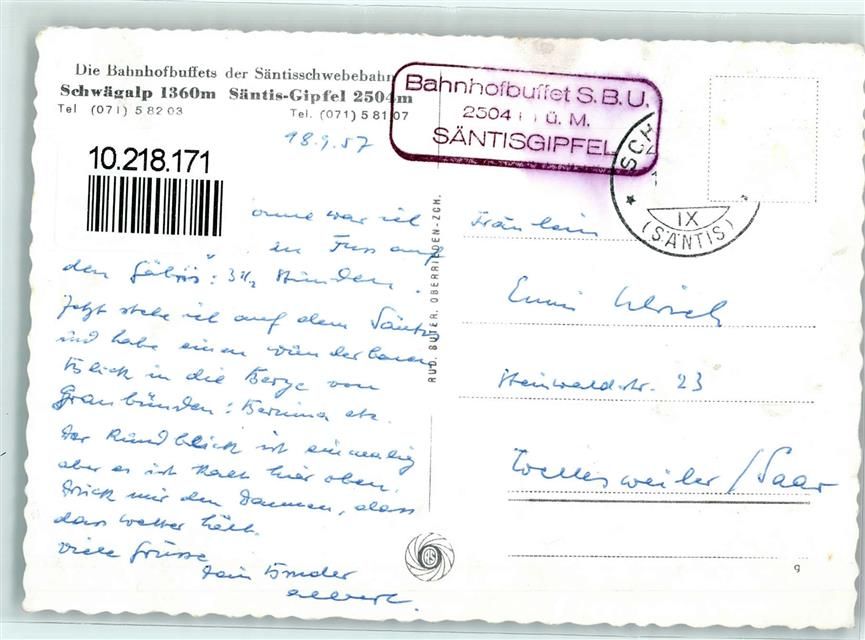 Die Bahnhofbuffets der Säntisschwebebahn
Schwägalp 1360m Säntis-Gipfel 2504m
Tel (071) 5 82 03 Tel. (071) 5 81 07
Bahnhofbuffet S.B.U.
2504 ü. M.
SÄNTISGIPFEL
18.9.57
10.218.171
war ich
zu Fuss auf
den : 3½ Stunden.
Jetzt stehe ich auf dem Säntis
und habe einen wunderbaren
Blick in die Berge von
Graubünden: Bernina etc.
Der Rundblick ist einmalig
aber es ist kalt hier oben.
Drück mir den Daumen, dass
das Wetter hält.
Viele Grüsse
Dein Bruder
Albert.
RUD. SUTER, OBERRIEDEN-ZCH.
SCH
IX
(SÄNTIS)
Fräulein
Emmi Ulrich
Steinwaldstr. 23
Wellesweiler / Saar
9